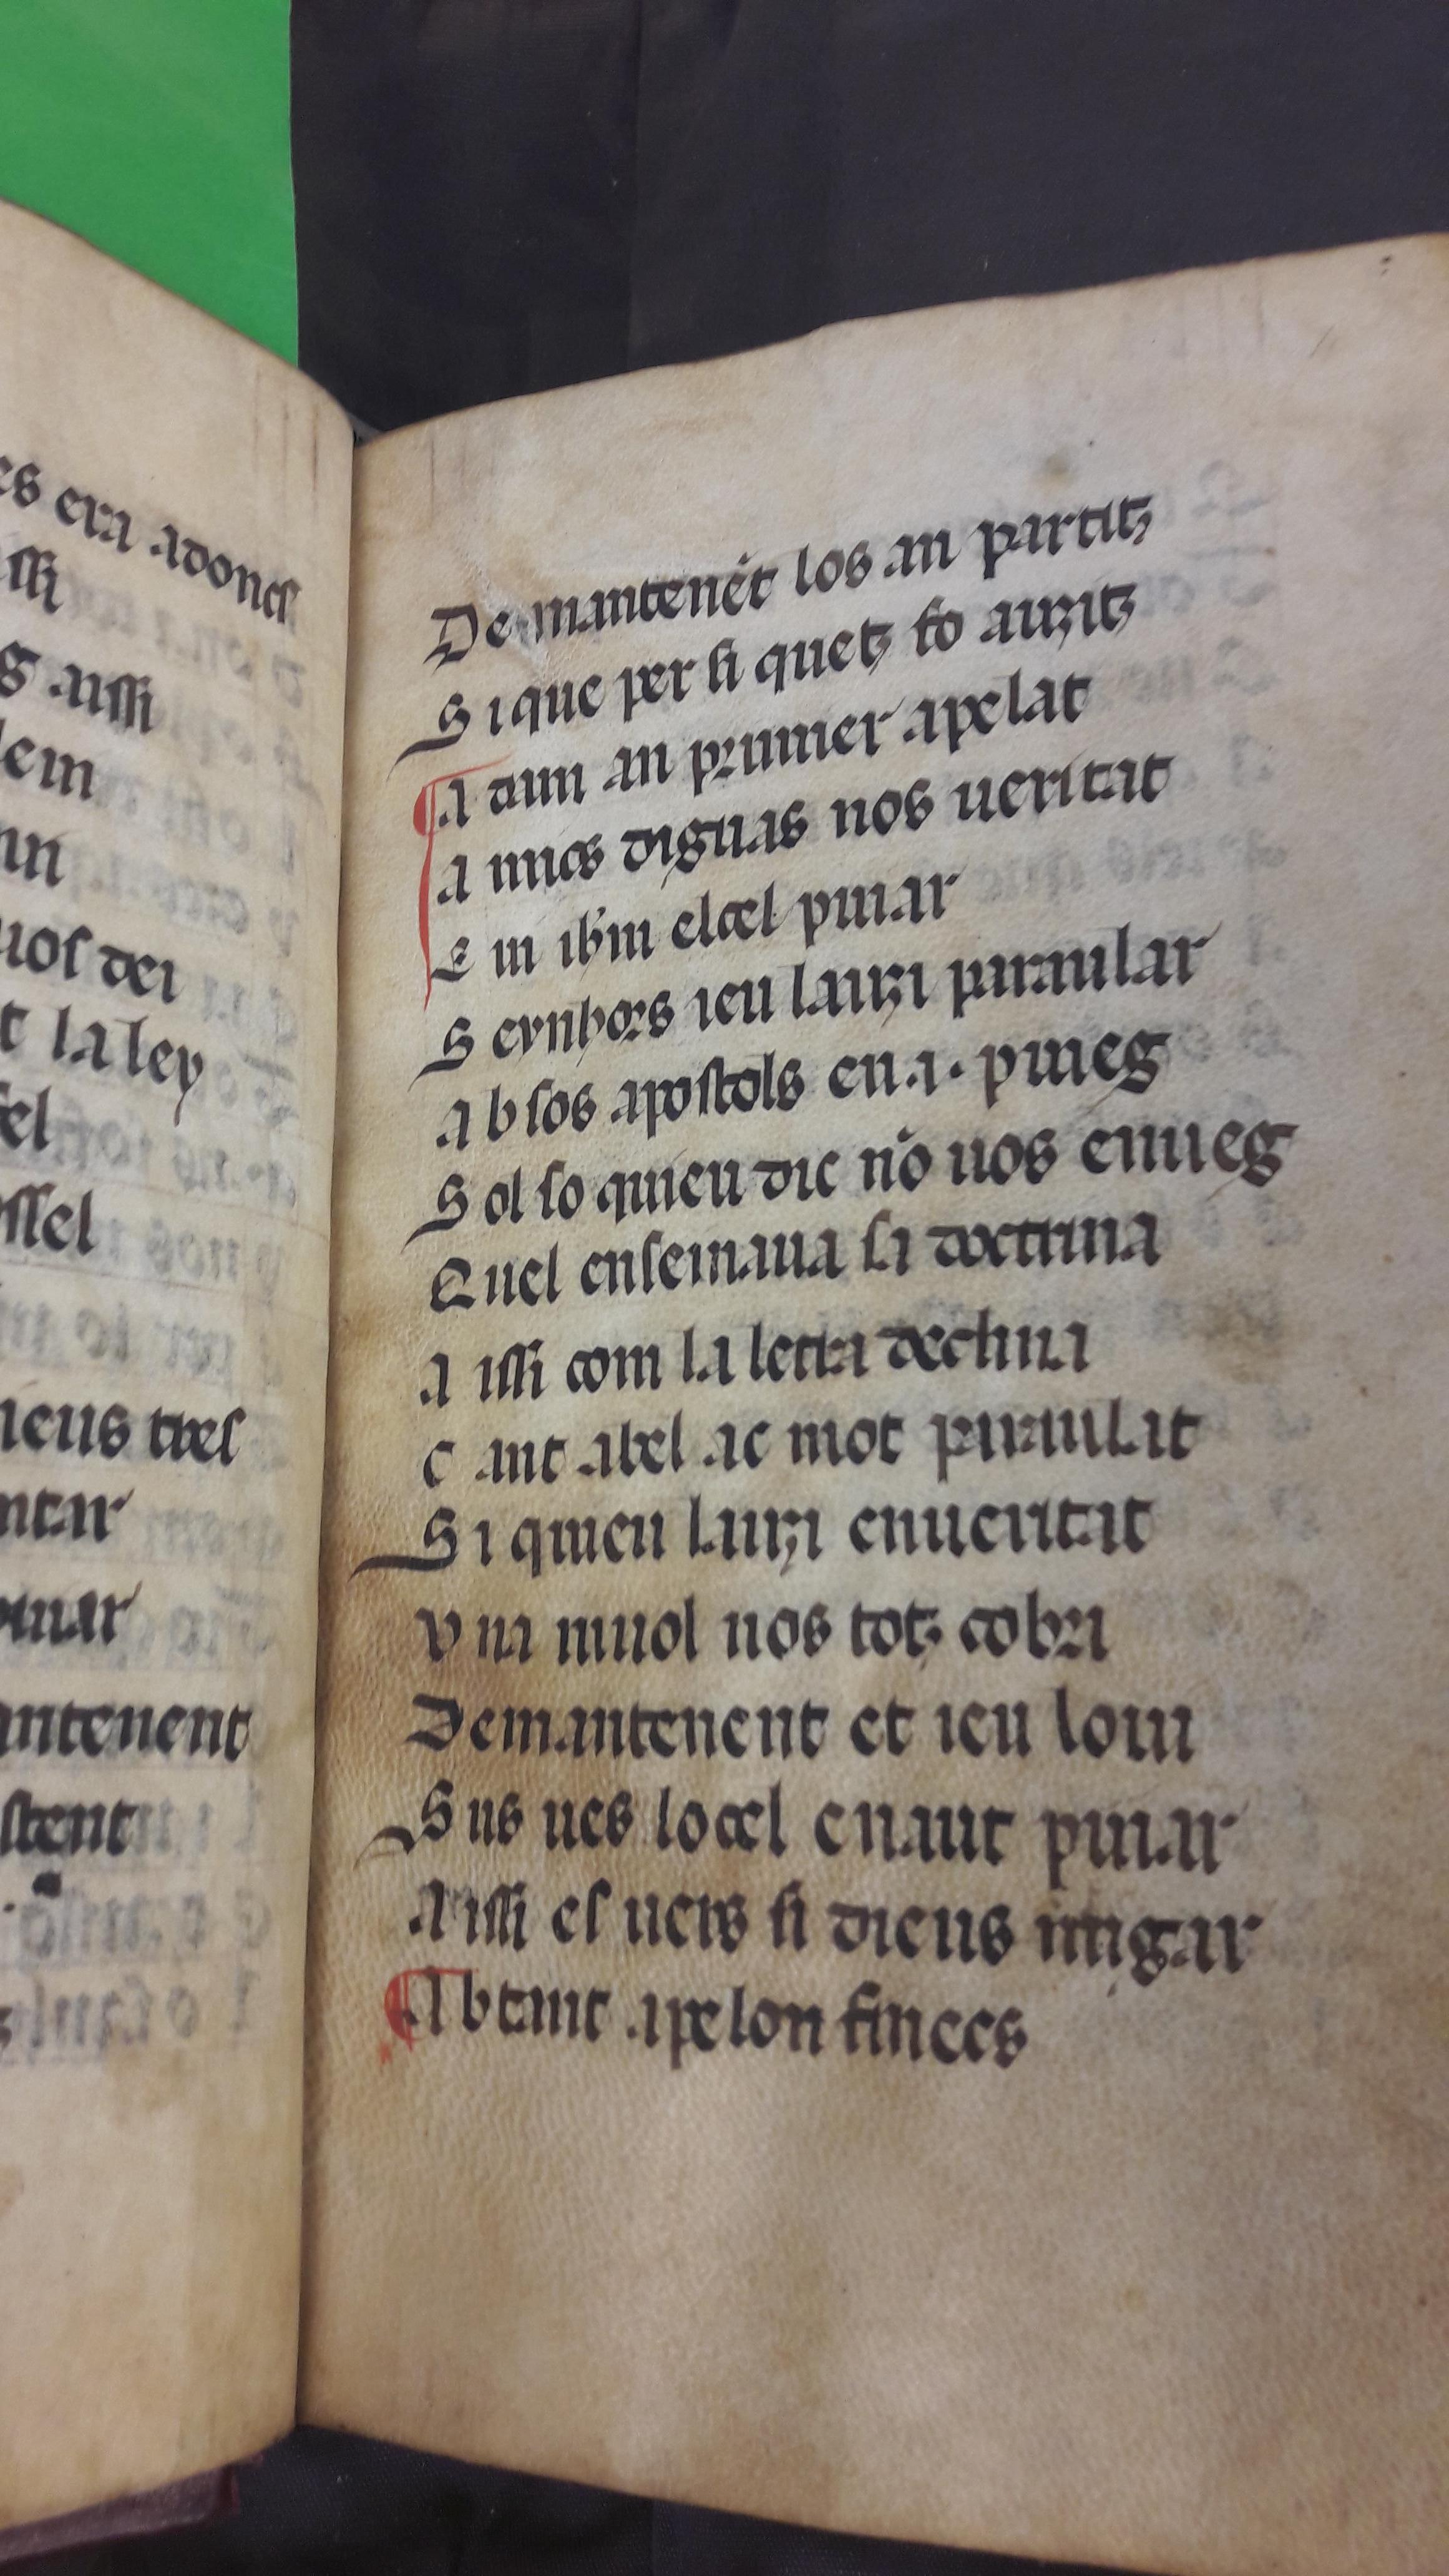 es era adoncs
issi
g aissi
lem
nn
uos dei
t la ley
sel
ssel
ieus tres
ntar
puiar
antenent
stent
De mantenēt los an partitz
Si que per si quetz fo auzitz
Adam an primier apelat
Amics diguas nos ueritat
Em ihrm el cel puiar
Seynhors ieu lauzi paraular
Ab sos apostols en .i. pueg
Sol so quieu dic nō uos enueg
Quel ensemaua sa doctrina
Aissi com la letra declina
Cant abel ac mot paraulat
Si quieu lauzi en ueritat
Una niuol nos totz cobri
Demantenent et ieu lo ui
Sus ues lo cel en aut puiar
Aissi es uers si dieus maigar
Abtant apelon finees